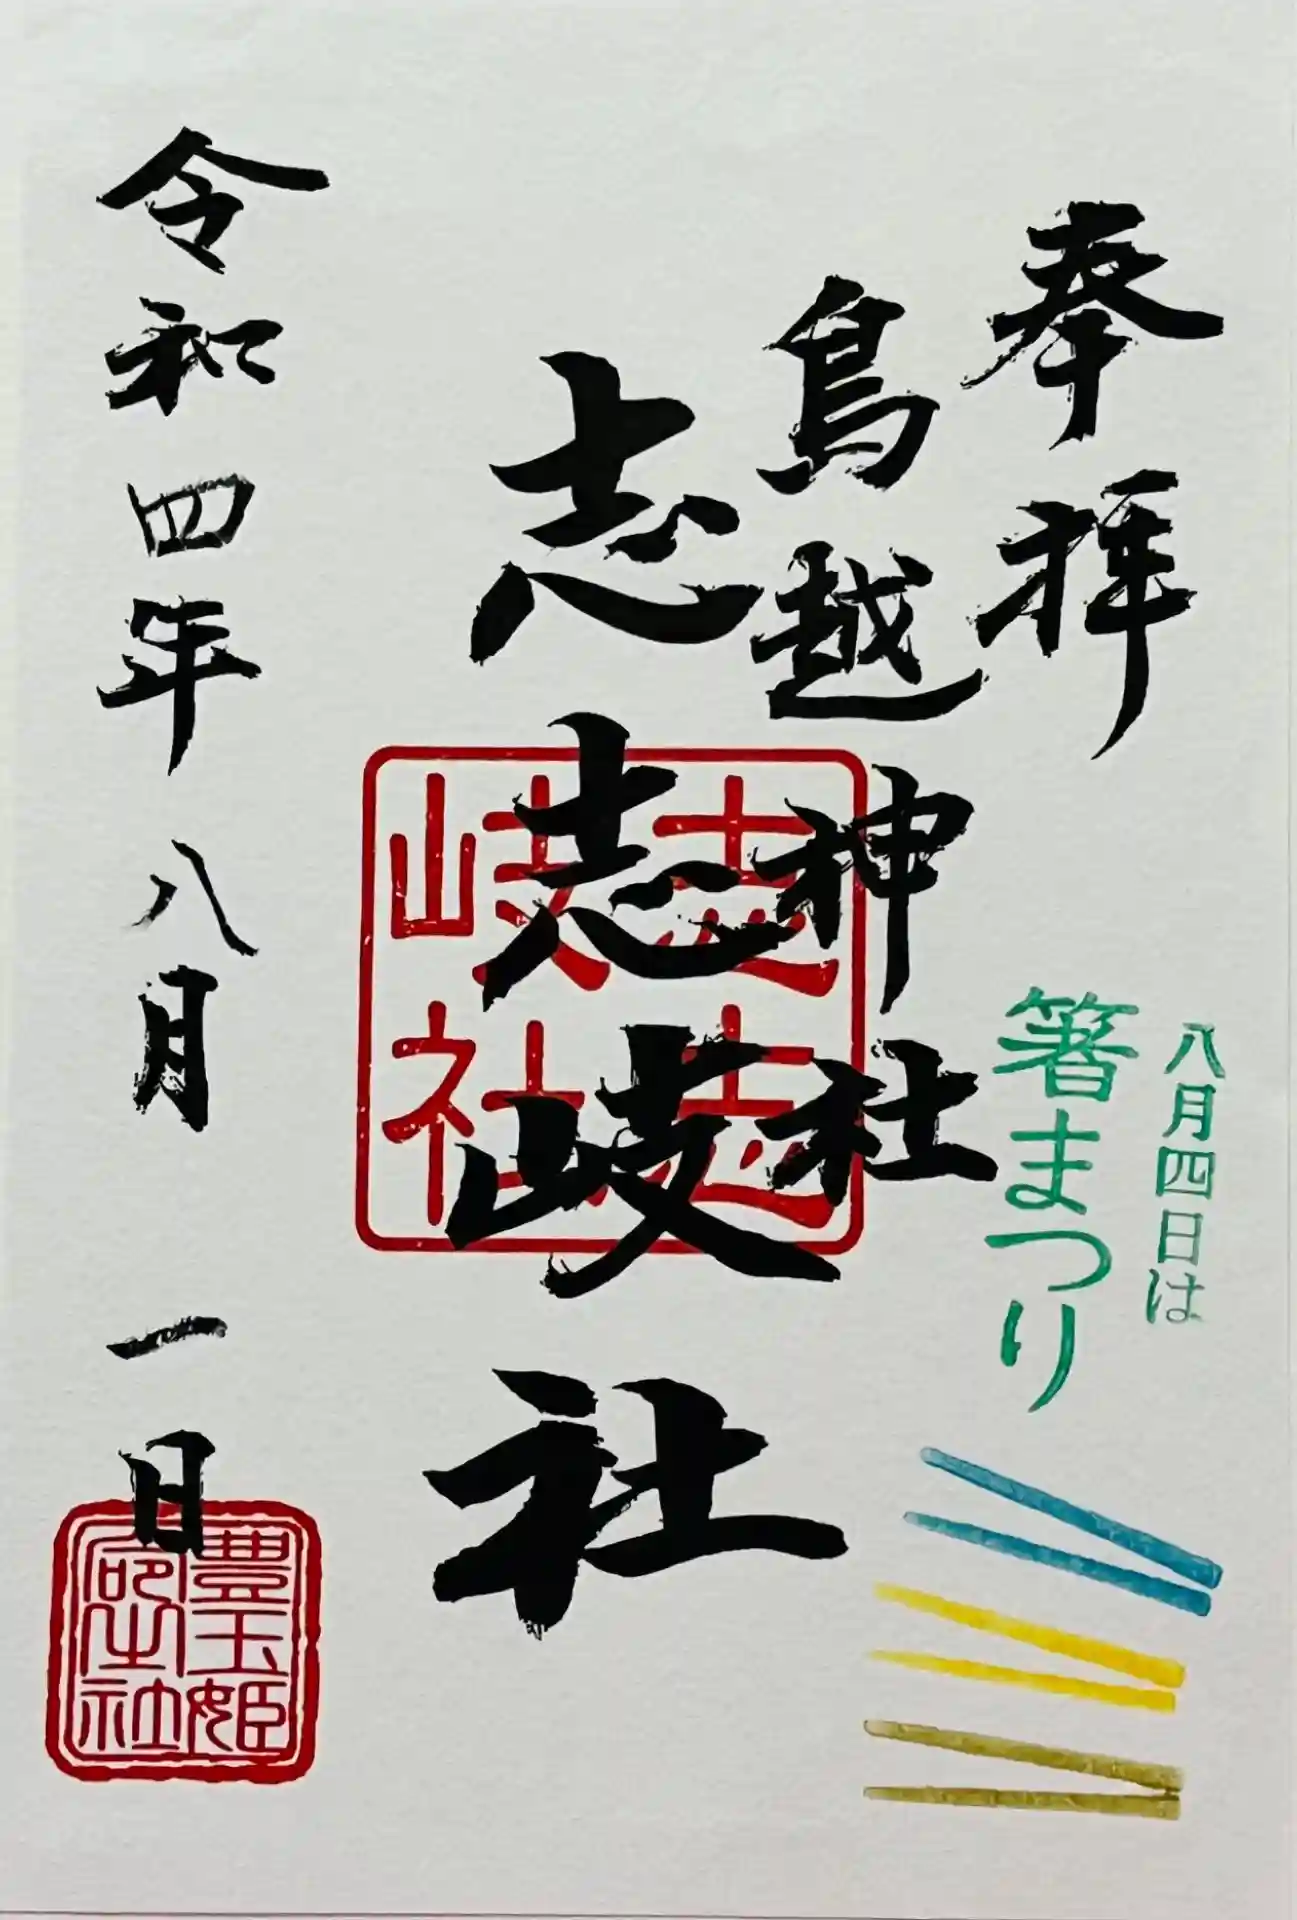 奉拝
八月四日は
箸まつり
鳥越神社
志志岐社
志志
岐社
令和四年八月一日
豊玉姫
神社